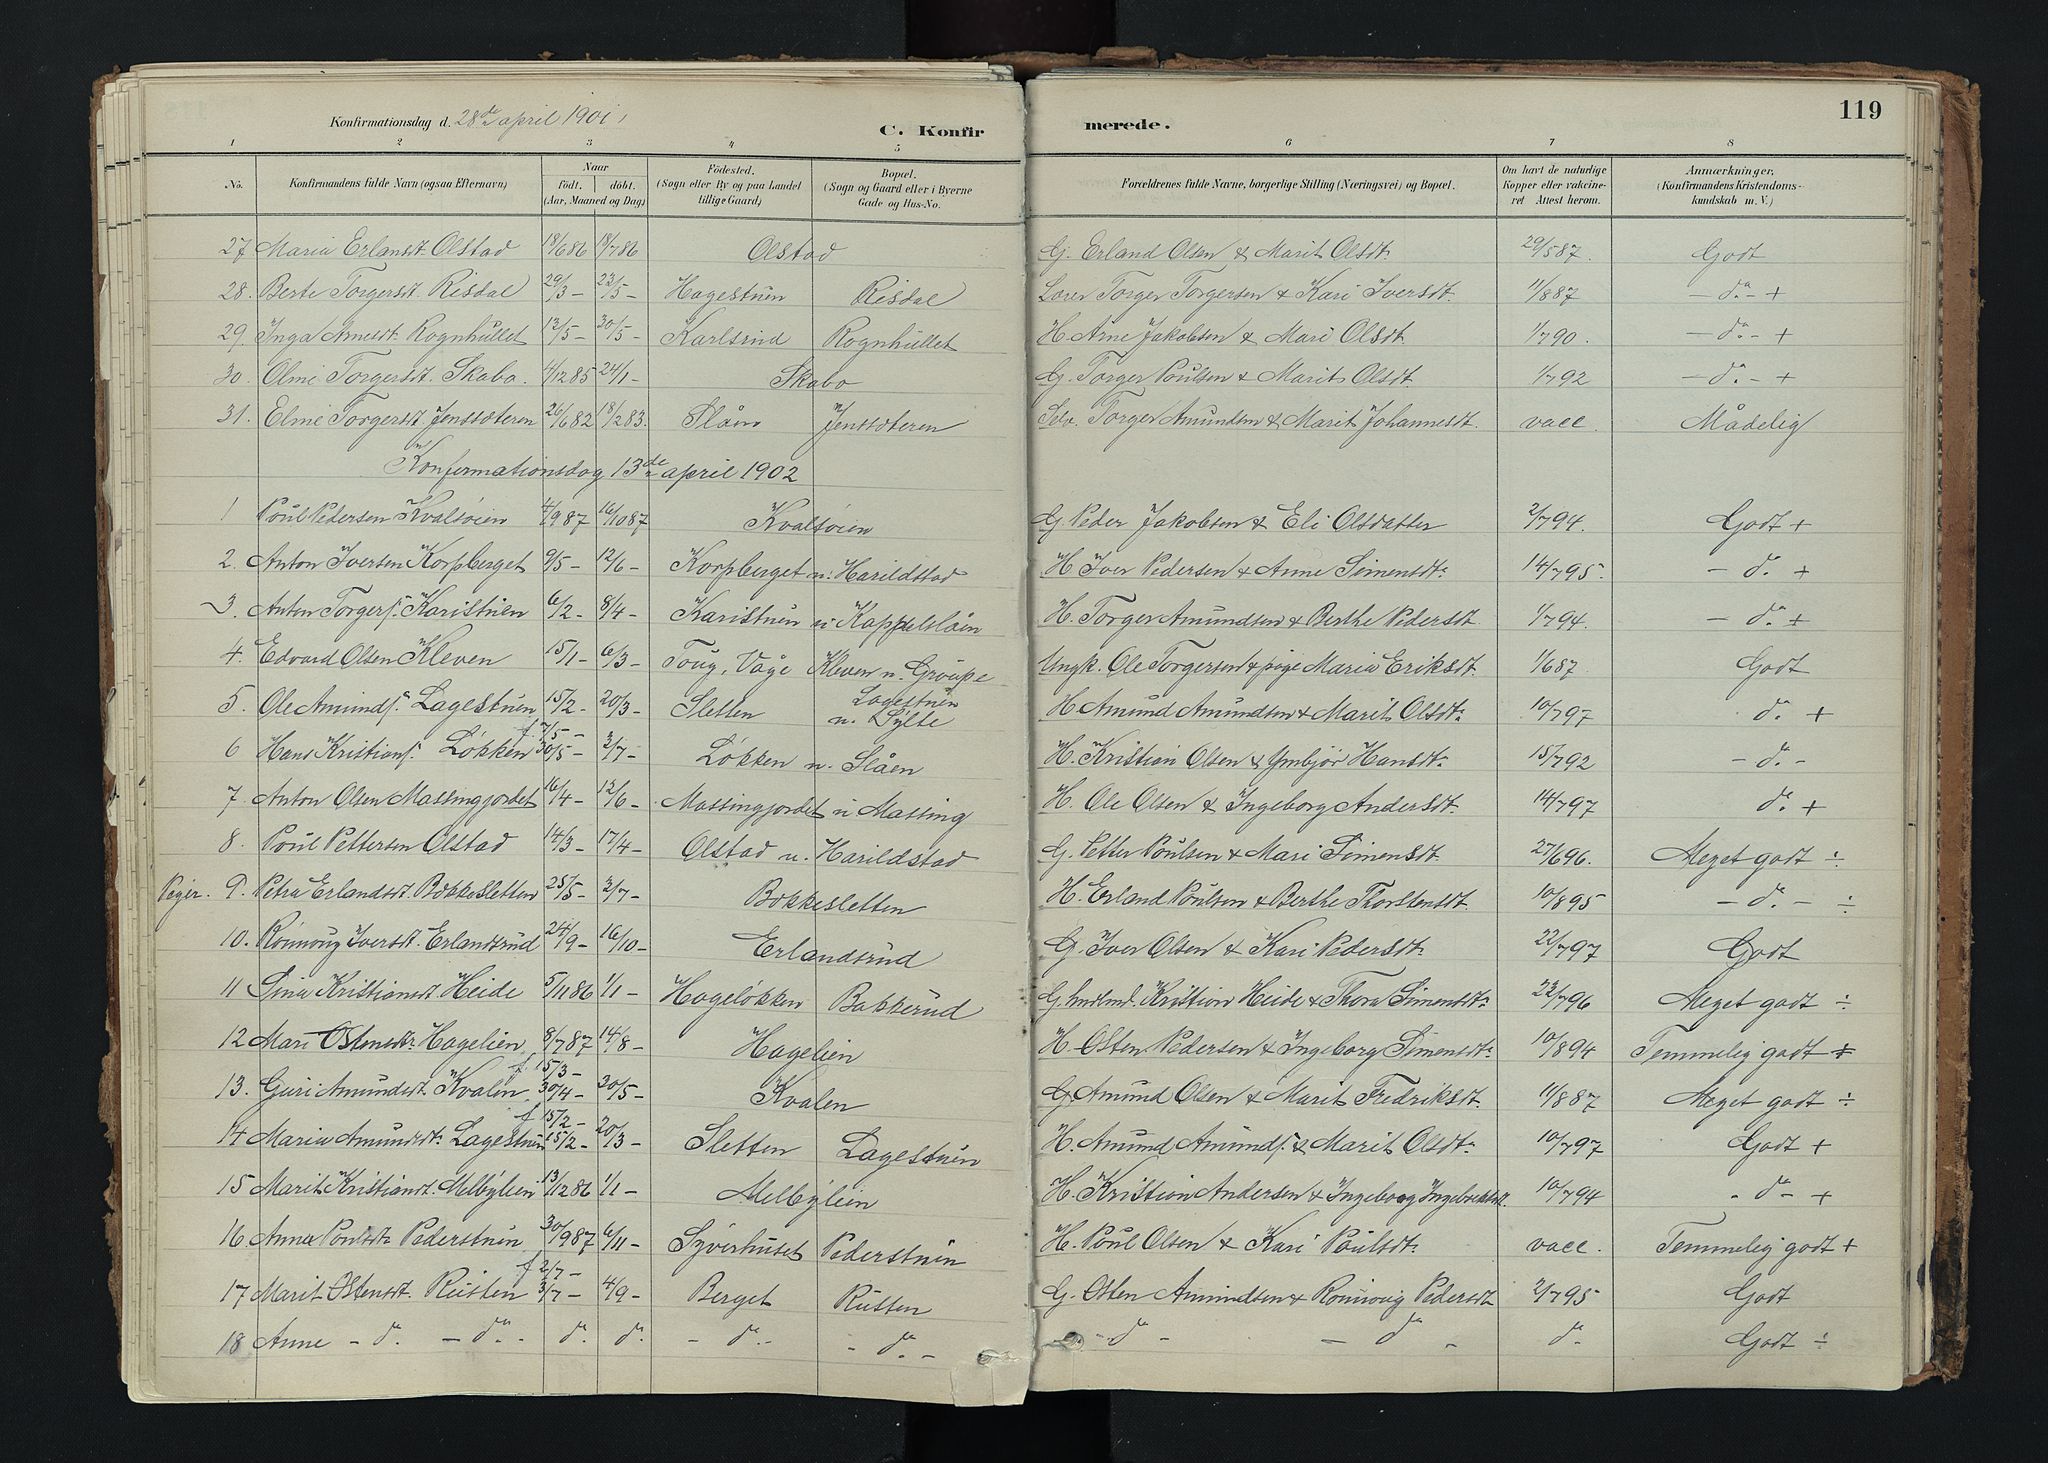 119
Konfirmationsdag d. 28de april 1901.
C. Konfirmerede.
1 2 3 4 5 6 7 8
No. Konfirmandens fulde Navn (ogsaa Efternavn) Naar födt. döbt. (Aar, Maaned og Dag) Födested. (Sogn eller By og paa Landet tillige Gaard) Bopæl. (Sogn og Gaard eller i Byerne Gade og Hus-No. Forældrenes fulde Navne, borgerlige Stilling (Næringsvei) og Bopæl. Om havt de naturlige Kopper eller vakcineret Attest herom. Anmærkninger. (Konfirmandens Kristendomskundskab m. V.)
27 Maria Erlandsdt. Olstad 18/6 86 18/7 86 Olstad G. Erland Olsen & Marit Olsdt. 29/5 87. Godt
28. Berte Torgersdt. Risdal 29/3 - 23/5 - Hagestuen Risdal Torger Torgersen & Kari Iversdt. 11/8 87 - do. - +
29. Inga Arnesdt. Rognhullet 12/5 - 30/5 - Karlsrud Rognhullet H. Arne Jakobsen & Mari Olsdt. 1/7 90. - do. - +
30. Olme Torgersdt. Skabo. 4/12 85 24/1 - Skabo G. Torger Poulsen & Marit Olsdt. 1/7 92 - do. - +
31. Elme Torgersdt. Jenssæteren 26/6 82 18/2 83. Slåen Jenssæteren Selv. Torger Amundsen & Marit Johannesdt. vacc. Mådelig
Konfirmationsdag 13de april 1902
1 Poul Pedersen Kvalsøien 4/9 87 16/10 87 Kvalsøien G. Peder Jakobsen & Eli Olsdatter 2/7 94. Godt +
2. Anton Iversen Korpberget 9/5 - 12/6 - Korpberget u. Harildstad H. Iver Pedersen & Anne Simensdt. 14/7 95. - do. +
3. Anton Torgers. Karistuen 6/2 - 8/4 - Karistuen u Kappelslåen H. Torger Amundsen & Berthe Pedersdt. 1/7 94. - do. +
4. Edvard Olsen Kleven 15/1 - 6/3 - Toug, Våge Kleven u. Groupe Ungk. Ole Torgersen & pige Maria Eriksdt. 1/6 87 Godt
5. Ole Amunds. Lagestuen 15/2 - 20/3 - Sletten Lagestuen u. Sylte H. Amund Amundsen & Marit Olsdt. 10/7 97 do. +
6 Hans Kristians. Løkken f. 7/5 - 30/5 - 3/7 - Løkken u. Slåen H. Kristian Olsen & Ymbjør Hansdt. 15/7 92 - do. -
7. Anton Olsen Massingjordet 16/4 - 12/6 - Massingjordet u Massing H. Ole Olsen & Ingeborg Andersdt. 14/7 97 do. +
8. Poul Pettersen Olstad 14/3 - 17/4 - Olstad u. Harildstad G. Petter Poulsen & Mari Simensdt. 27/6 96. Meget godt ÷
Piger. 9. Petra Erlandsdt. Bokkesletten 25/5 - 3/7 - Bokkesletten H. Erland Poulsen & Berthe Thorstensdt. 10/8 95 - do. - ÷
10. Rønnoug Iversdt. Erlandsrud 24/9 - 16/10 - Erlandsrud G. Iver Olsen & Kari Pedersdt. 22/7 97 Godt
11 Sina Kristiansdt. Heide 5/11 86 1/1 - Hageløkken Bakkerud G. Indlmd. Kristian Heide & Thora Simensdt. 22/7 96 Meget godt ÷
12 Mari Ostensdt. Hagelien 8/7 87 14/8 - Hagelien H. Osten Pedersen & Ingeborg Simensdt. 10/8 94 Temmelig godt +
13. Guri Amundsdt. Kvalen f. 15/3 - 30/4 - 30/5 - Kvalen G. Amund Olsen & Marit Fredriksdt. 11/8 87 Meget godt ÷
14 Maria Amundsdt. Lagestuen f 15/2 - 15/2 - 20/3 - Sletten Lagestuen H. Amund Amunds. & Marit Olsdt. 10/7 97 Godt +
15 Marit Kristiansdt. Melbylien 13/12 86 1/1 - Melbylien H. Kristian Andersen & Ingeborg Ingebretsdt. 10/7 94 - do - +
16. Anna Poulsdt. Pederstuen 30/9 87 6/11 - Syverhuset Pederstuen H. Poul Olsen & Kari Poulsdt. vacc. Temmelig godt +
17 Marit Ostensdt. Rusten f 2/7 - 3/7 - 4/9 - Berget Rusten G. Osten Amundsen & Rønnoug Pedersdt 2/7 95 Godt
18 Anne - do. - do. - do. do. - do. - - do. - - do - - do - do - Godt ÷